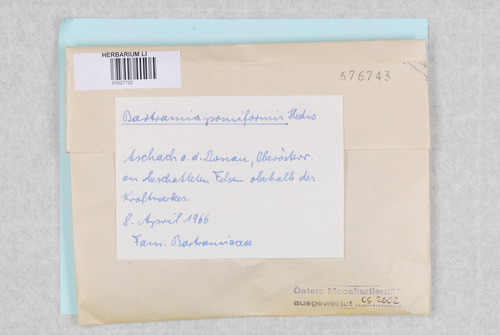 HERBARIUM LI
01627732
676743
Bartramia pomiformis Hedw
Aschach a. d. Donau, Oberösterr.
an beschatteten Felsen oberhalb des
Kraftwerkes.
8. April 1966
Fam. Bartramiaceae
Österr. Mooskartierung
ausgewertet GS 2002